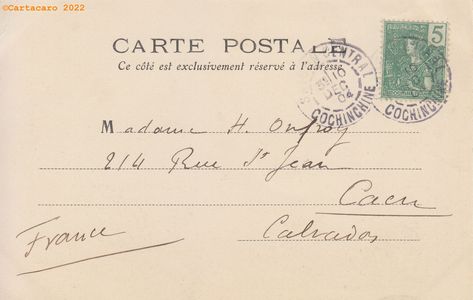 ©Cartacaro 2022
CARTE POSTALE
Ce côté est exclusivement réservé à l'adresse
5
CENTRAL
16
DEC
04
COCHINCHINE
COCHINCHINE
Madame H. Onfroy
214 Rue St Jean
Caen
Calvados
France